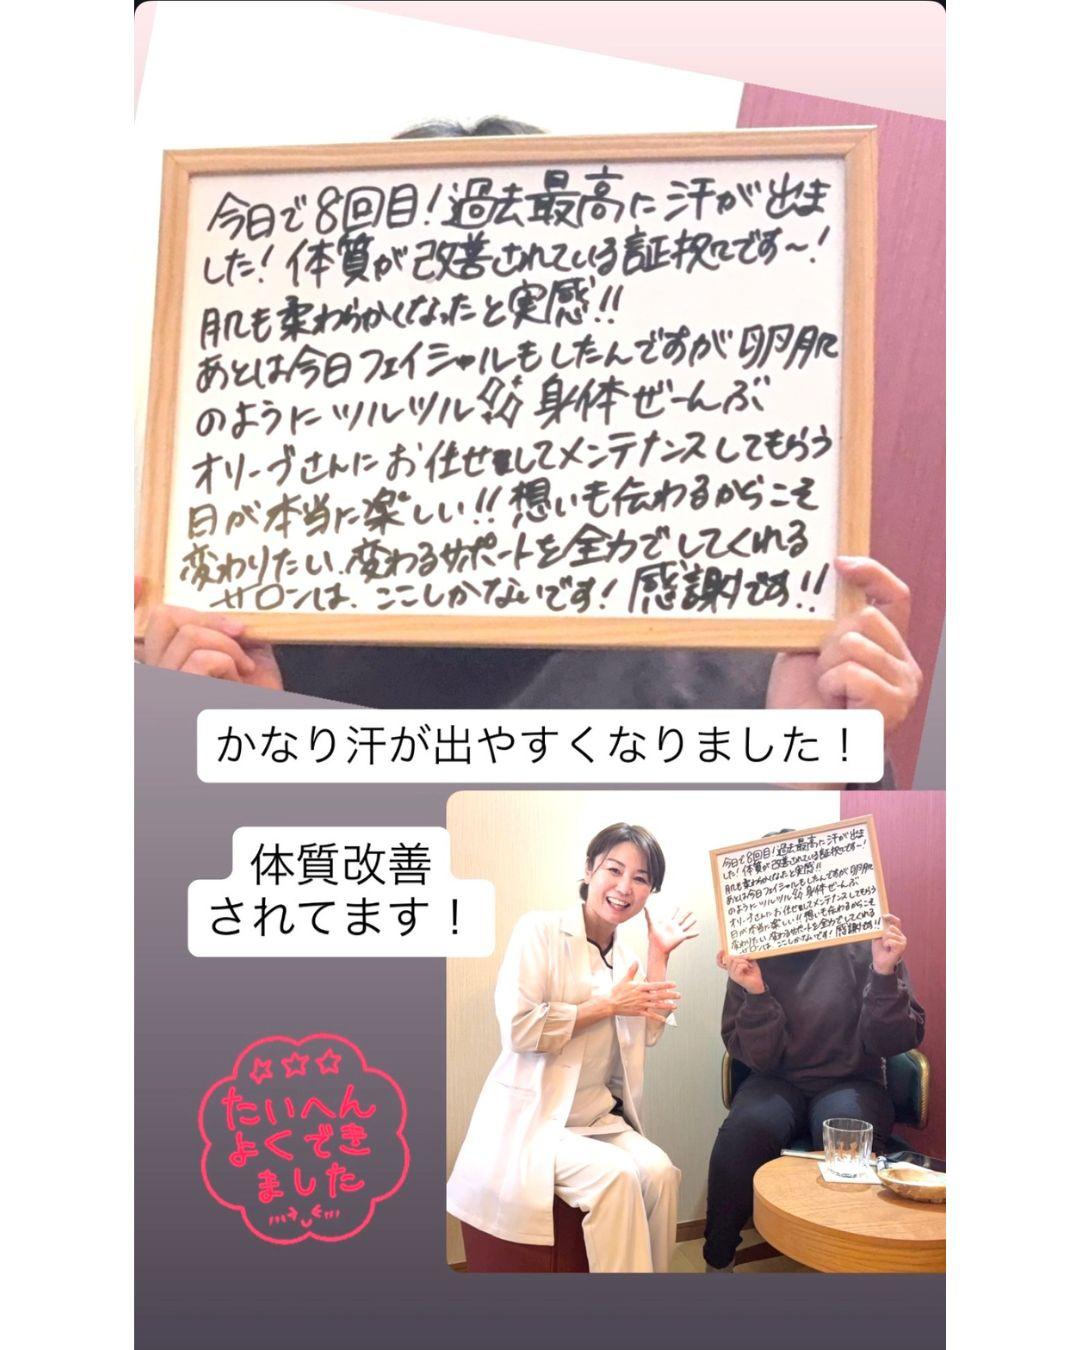 今日で8回目!過去最高に汗が出ま
した!体質が改善されている証拠です〜!
肌も柔わらかくなったと実感!!
あとは今日フェイシャルもしたんですが卵肌
のようにツルツル 身体ぜーんぶ
オリーブさんにお任せしてメンテナンスしてもらう
日が本当に楽しい!!想いも伝わるからこそ
変わりたい、変わるサポートを全力でしてくれる
サロンは、ここしかないです!感謝です!!
かなり汗が出やすくなりました!
体質改善
されてます!
今日で8回目!過去最高に汗が出ま
した!体質が改善されている証拠です〜!
肌も柔わらかくなったと実感!!
あとは今日フェイシャルもしたんですが卵肌
のようにツルツル 身体ぜーんぶ
オリーブさんにお任せしてメンテナンスしてもらう
日が本当に楽しい!!想いも伝わるからこそ
変わりたい、変わるサポートを全力でしてくれる
サロンは、ここしかないです!感謝です!!
たいへん
よくでき
ました